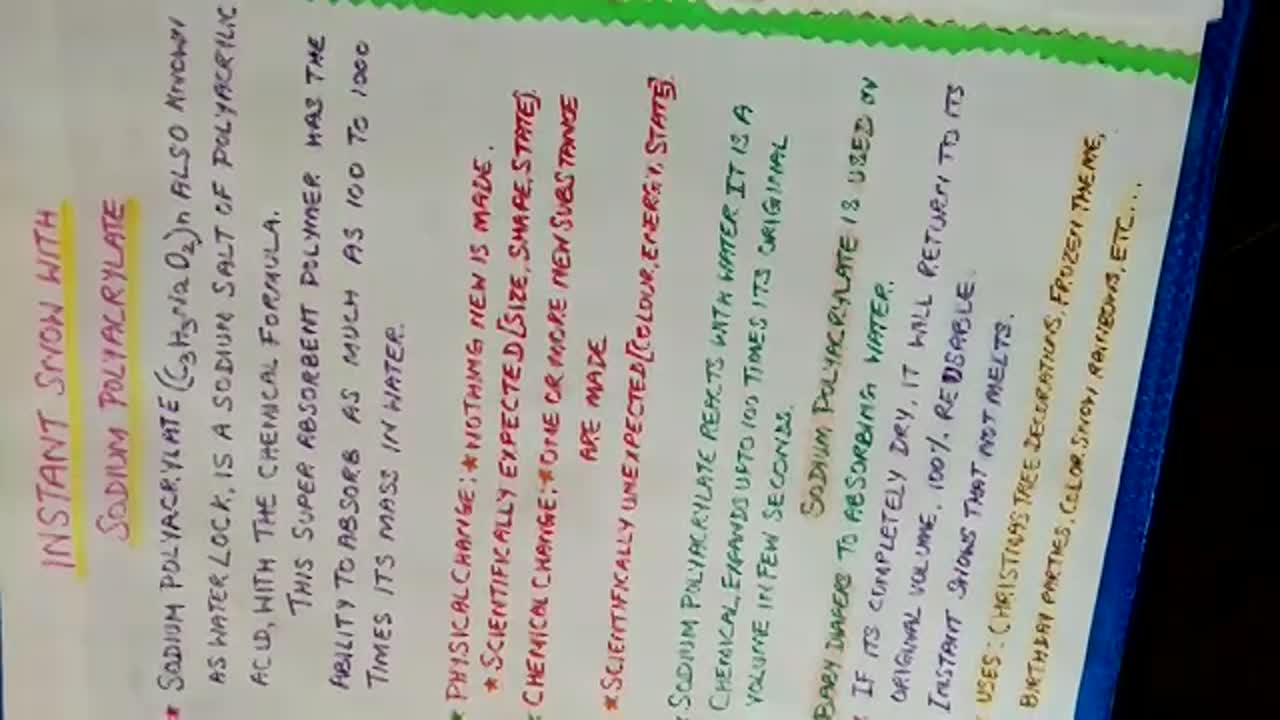 INSTANT SNOW WITH
SODIUM POLYACRYLATE
* SODIUM POLYACRYLATE (C3H3NaO2)n ALSO KNOWN
AS WATER LOCK, IS A SODIUM SALT OF POLYACRILIC
ACID, WITH THE CHEMICAL FORMULA.
THIS SUPER ABSORBENT POLYMER HAS THE
ABILITY TO ABSORB AS MUCH AS 100 TO 1000
TIMES ITS MASS IN WATER.
* PHYSICAL CHANGE: * NOTHING NEW IS MADE.
* SCIENTIFICALLY EXPECTED [SIZE, SHAPE, STATE].
* CHEMICAL CHANGE: * ONE OR MORE NEW SUBSTANCE
ARE MADE
* SCIENTIFICALLY UNEXPECTED [COLOUR, ENERGY, STATE].
* SODIUM POLYACRYLATE REACTS WITH WATER IT IS A
CHEMICAL, EXPANDS UPTO 100 TIMES ITS ORIGINAL
VOLUME IN FEW SECONDS.
SODIUM POLYACRYLATE IS USED ON
BABY DIAPERS TO ABSORBING WATER.
* IF ITS COMPLETELY DRY, IT WILL RETURN TO ITS
ORIGINAL VOLUME, 100% REUSABLE.
INSTANT SNOWS THAT NOT MELTS.
* USES: CHRISTMAS TREE DECORATIONS, FROZEN THEME,
BIRTHDAY PARTIES, COLOR SNOW RAINBOWS, ETC...